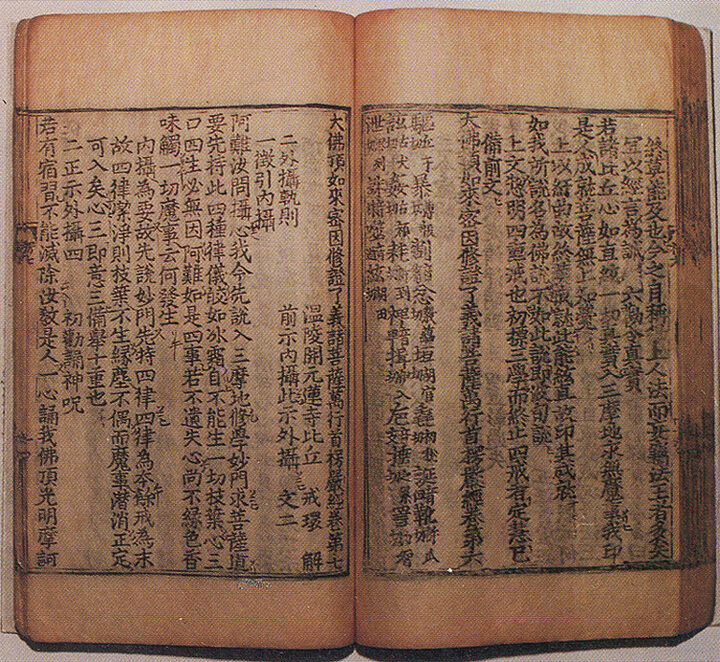 也今之自稱上人法而妄法王者多矣
宜以經言為誡 六勸令真實
若諸比丘心如直絃一切真實入三摩地永無魔事我印
是人成就菩薩無上知覺
上以紆曲故終莫成就此能絃直故印其成就
如我所說名為佛說不如此說即波旬說
上文總明四重戒也初標三學而終止四戒者定慧已
備前文
大佛頂如來密因修證了義諸菩薩萬行首楞嚴經卷第六
大佛頂如來密因修證了義諸菩薩萬行首楞嚴經卷第七
溫陵開元蓮寺比丘 戒環 解
二外攝軌則 前示內攝此示外攝 文二
一徵引內攝
阿難汝問攝心我今先說入三摩地修學妙門求菩薩道
要先持此四種律儀皎如氷霜自不能生一切枝葉心三
口四生必無因阿難如是四事若不遺失心尚不緣色香
味觸一切魔事云何發生
內攝為要故先說妙門先持四律四律為本餘戒為末
故四律潔淨則枝葉不生緣塵不偶而魔事潛消正定
可入矣心三即意三備舉十重也
二正示外攝四 初勸誦神呪
若有宿習不能滅除汝教是人一心誦我佛頂光明摩訶